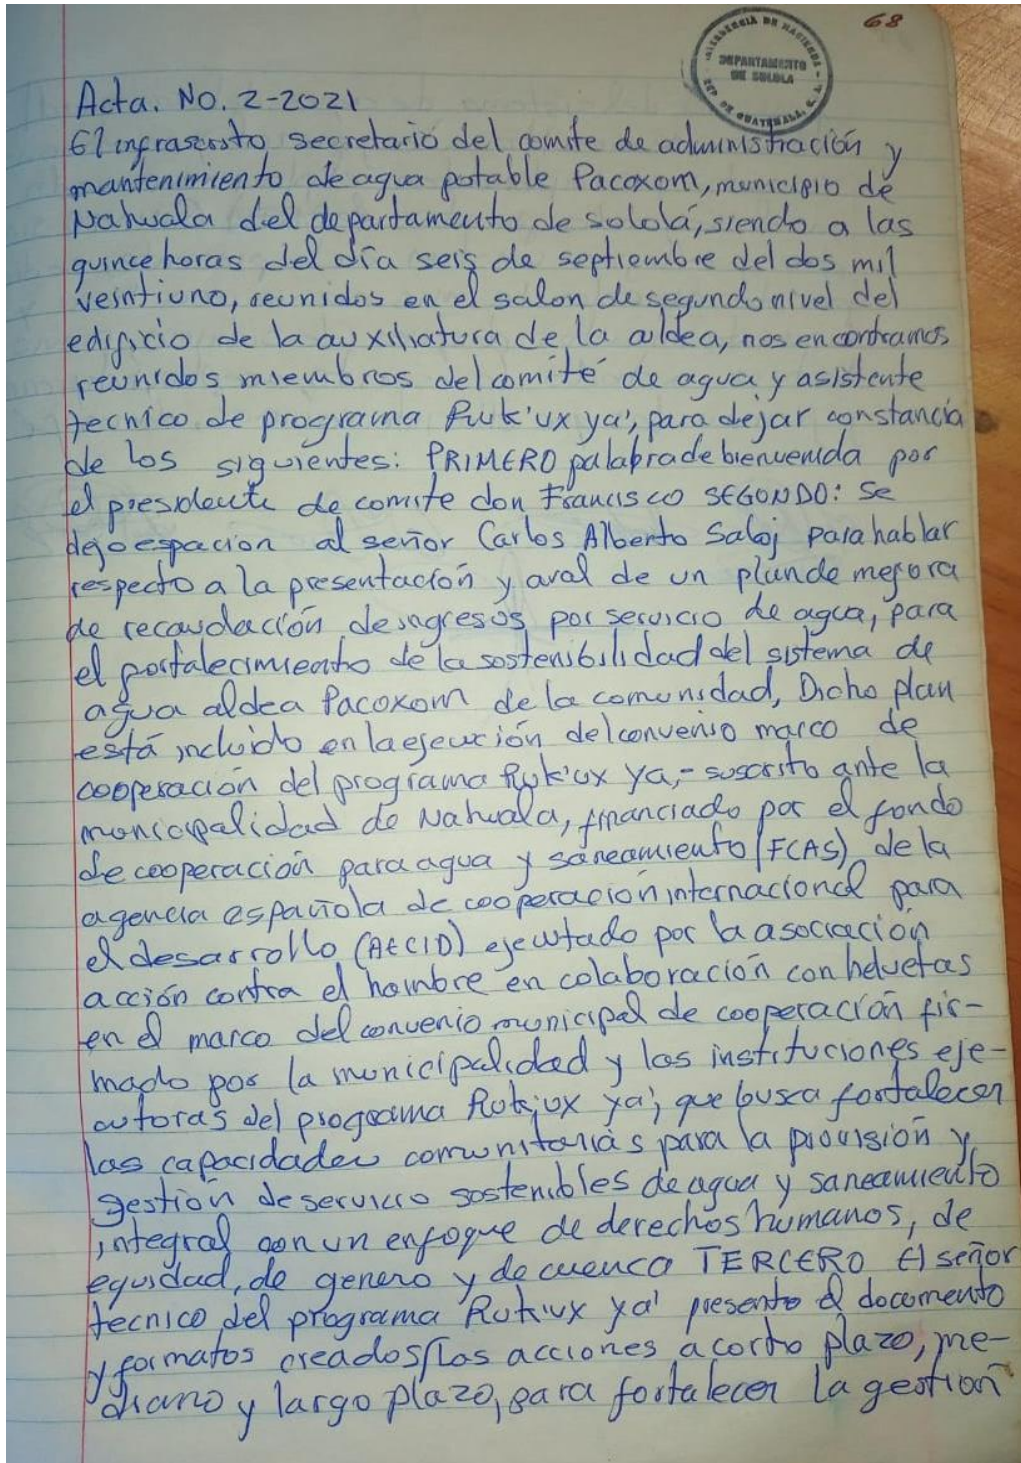 68
DEPARTAMENTO
DE SOLOLA
Acta. No. 2-2021
El infrascrito secretario del comite de administración y
mantenimiento de agua potable Pacoxom, municipio de
Nahuala del departamento de sololá, siendo a las
quince horas del día seis de septiembre del dos mil
veintiuno, reunidos en el salon de segundo nivel del
edificio de la auxiliatura de la aldea, nos encontramos
reunidos miembros del comité de agua y asistente
tecnico de programa Ruk'ux ya', para dejar constancia
de los siguientes: PRIMERO palabra de bienvenida por
el presidente de comite don Francisco SEGUNDO: Se
dejo espacion al señor Carlos Alberto Saloj para hablar
respecto a la presentación y aval de un plan de mejora
de recaudación de ingresos por servicio de agua, para
el fortalecimiento de la sostenibilidad del sistema de
agua aldea Pacoxom de la comunidad, Dicho plan
está incluido en la ejecución del convenio marco de
cooperación del programa Ruk'ux ya,- suscrito ante la
municipalidad de Nahuala, financiado por el fondo
de cooperación para agua y saneamiento (FCAS) de la
agencia española de cooperación internacional para
el desarrollo (AECID) ejecutado por la asociación
acción contra el hambre en colaboración con helvetas
en el marco del convenio municipal de cooperación fir-
mado por la municipalidad y las instituciones eje-
cutoras del programa Ruk'ux ya', que busca fortalecer
las capacidades comunitarias para la provisión y
gestión de servicio sostenibles de agua y saneamiento
integral con un enfoque de derechos humanos, de
equidad, de genero y de cuenca TERCERO El señor
tecnico del programa Ruk'ux ya' presento el documento
y formatos creados, Las acciones a corto plazo, me-
diano y largo plazo, para fortalecer la gestion